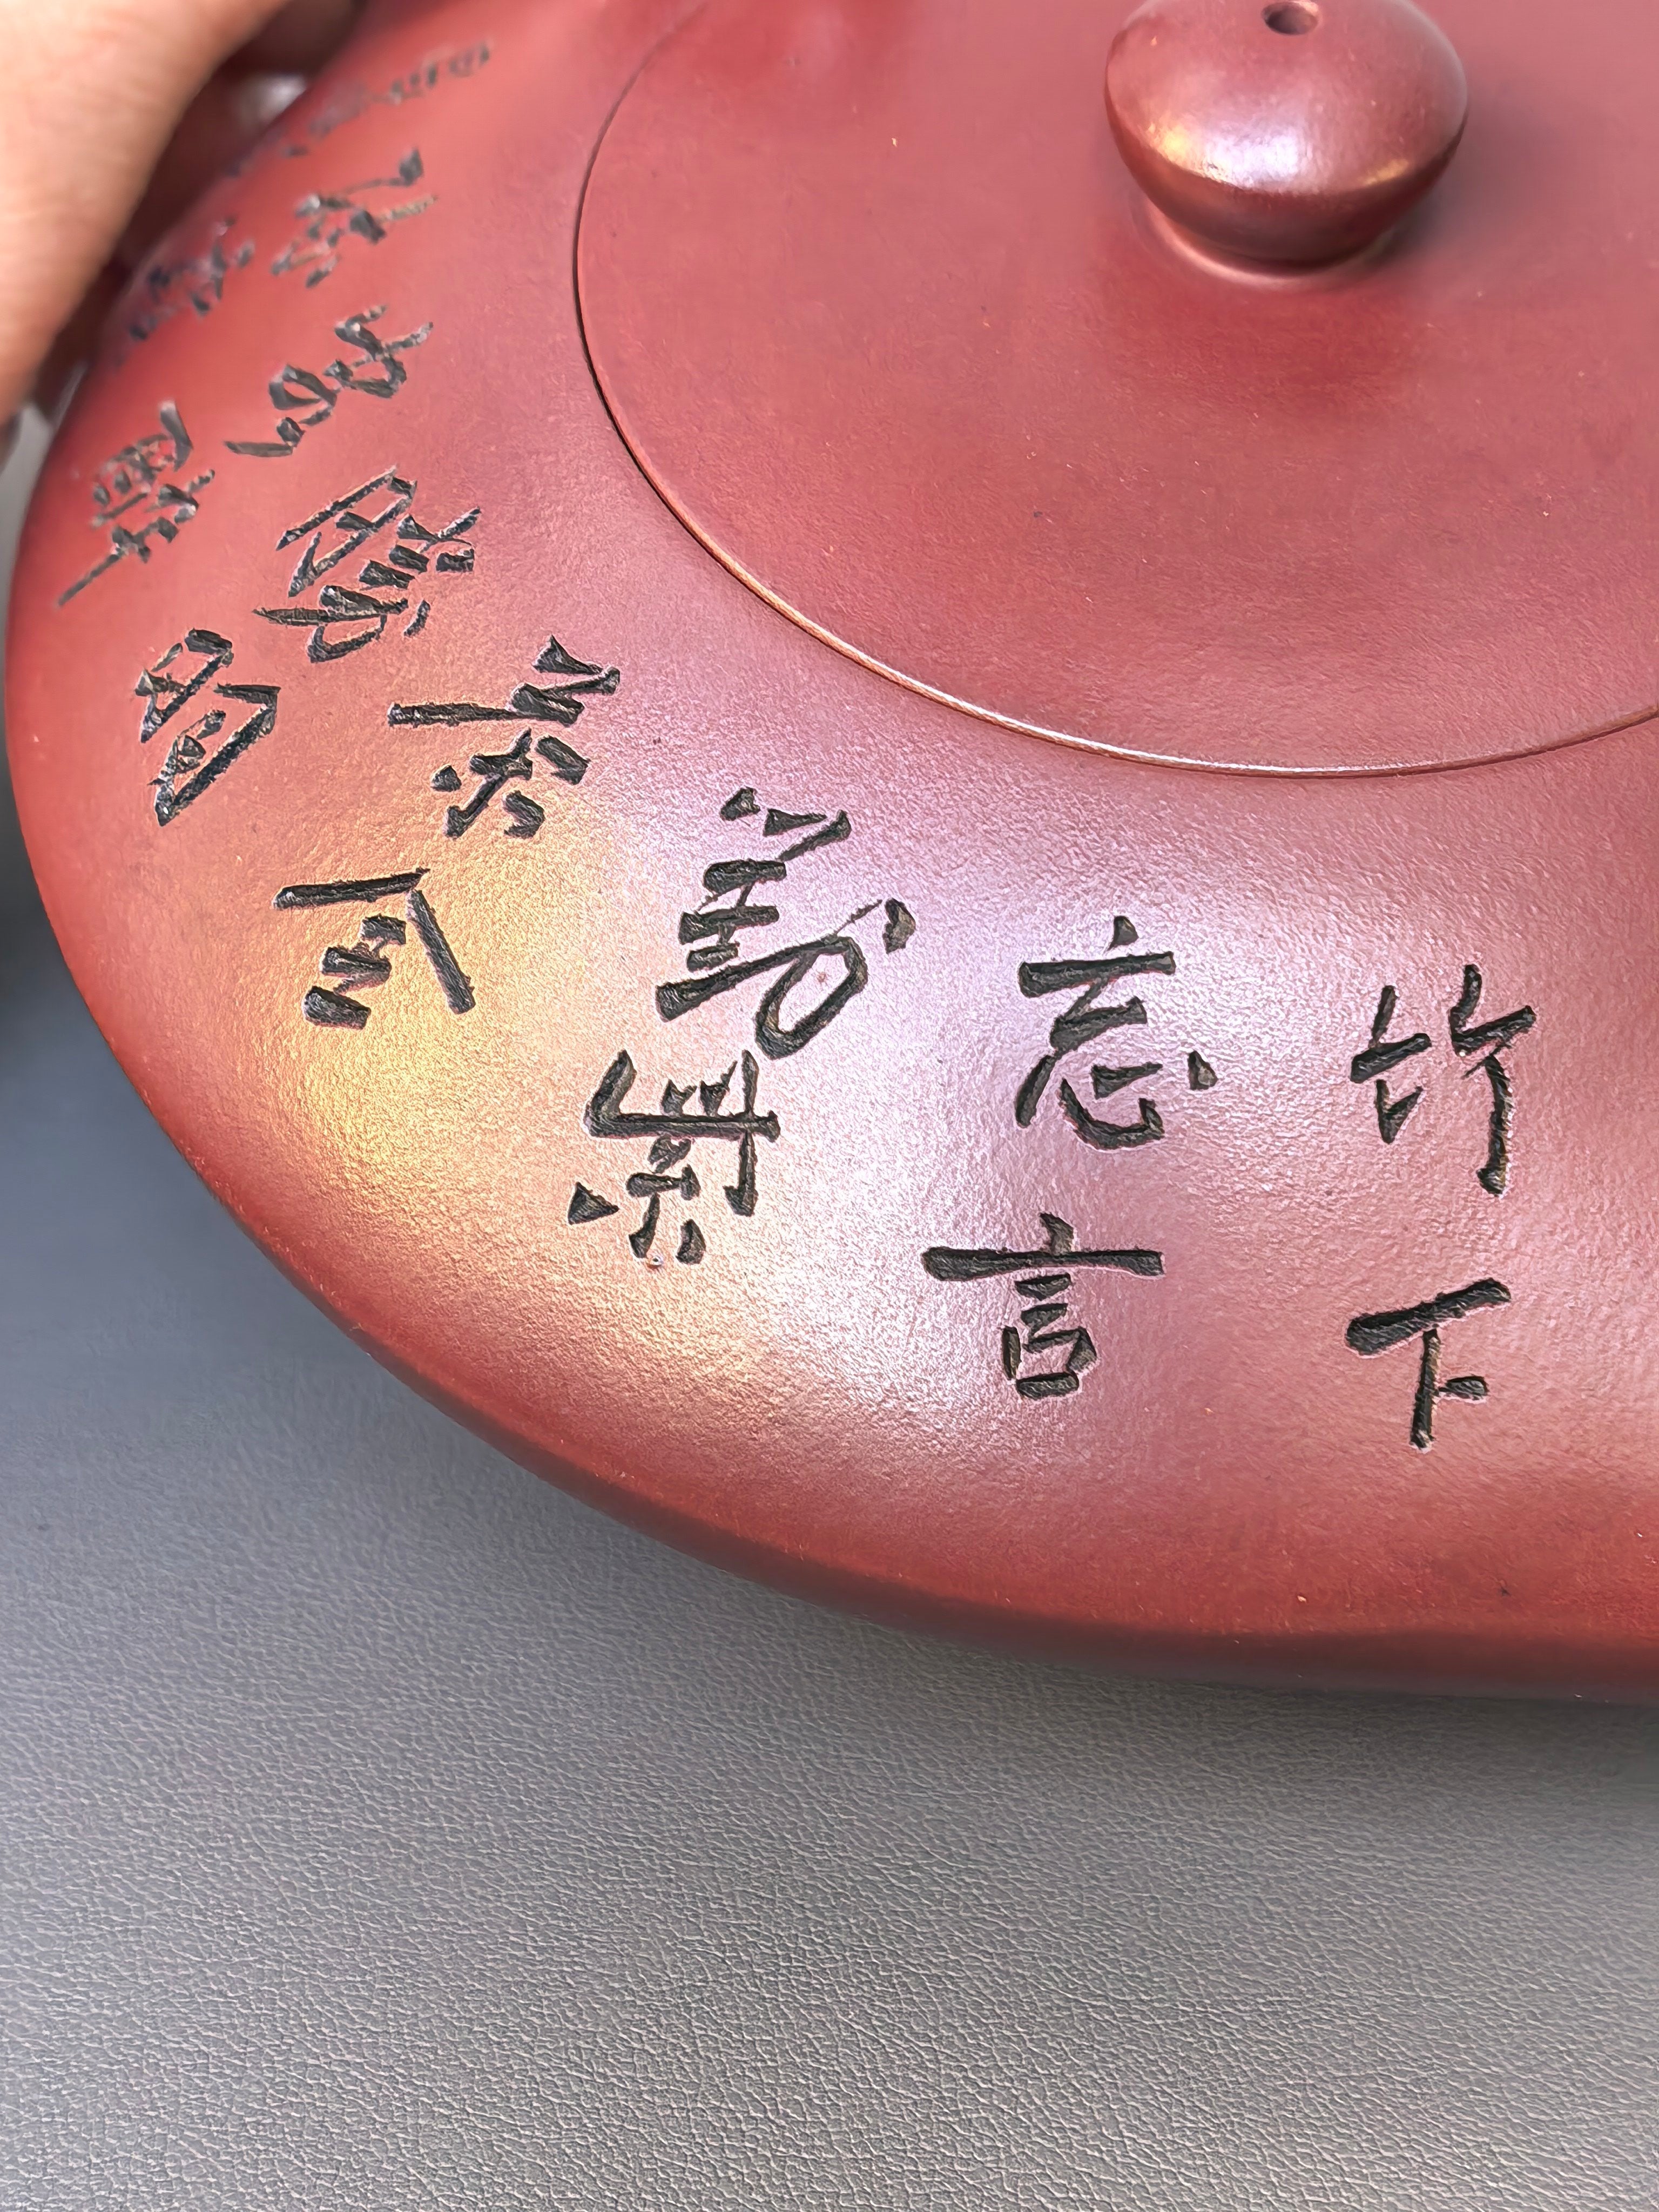 竹下
忘言
對紫
茶全
勝羽
客醉
流霞